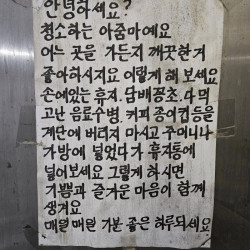 안녕하세요?
청소하는 아줌마예요
어느 곳을 가든지 깨끗한거
좋아하시지요 이렇게 해 보세요
손에있는 휴지. 담배꽁초. 다 먹
고난 음료수병. 커피 종이컵등을
계단에 버리지 마시고 주머니나
가방에 넣었다가 휴지통에
넣어보세요 그렇게 하시면
기쁨과 즐거운 마음이 함께
생겨요
매일 매일 기분 좋은 하루되세요.